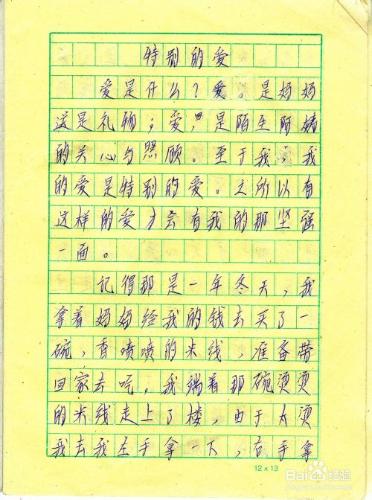 特别的爱
爱是什么？爱，是妈妈
送是礼物；爱，是陌生阿姨
的关心与照顾。至于我，我
的爱是特别的爱。之所以有
这样的爱才会有我的那坚强
一面。
记得那是一年冬天，我
拿着妈妈给我的钱去买了一
碗，香喷喷的米线，准备带
回家去吃，我端着那碗烫烫
的米线走上了楼，由于太烫
我去我左手拿一下，右手拿
12×13
Baidu 经验